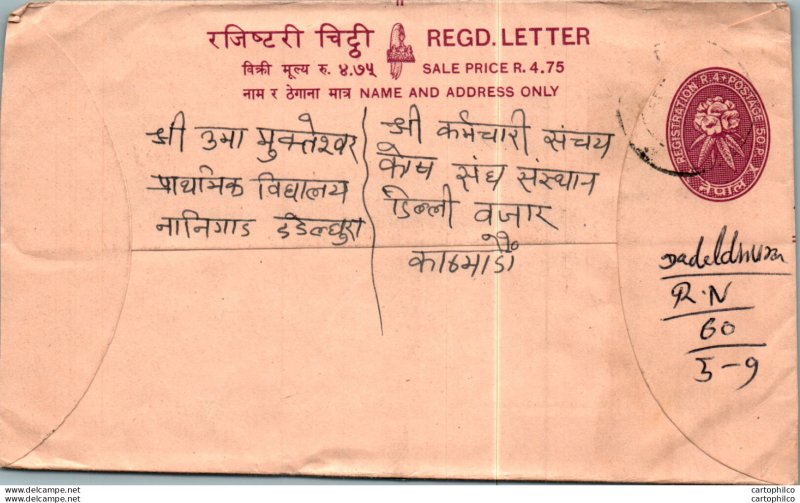 रजिष्टरी चिट्ठी REGD. LETTER
विक्री मूल्य रु. ४.७५ SALE PRICE R. 4.75
नाम र ठेगाना मात्र NAME AND ADDRESS ONLY
REGISTRATION R. 4 + POSTAGE 50 P.
नेपाल
श्री उमा मुक्तेश्वर
प्राथमिक विद्यालय
नानिगाड डडेल्धुरा
श्री कर्मचारी संचय
कोष संघ संस्थान
डिल्ली वजार
काठमाडौं
Dadeldhura
R.N
60
5-9
cartophilco
cartophilco